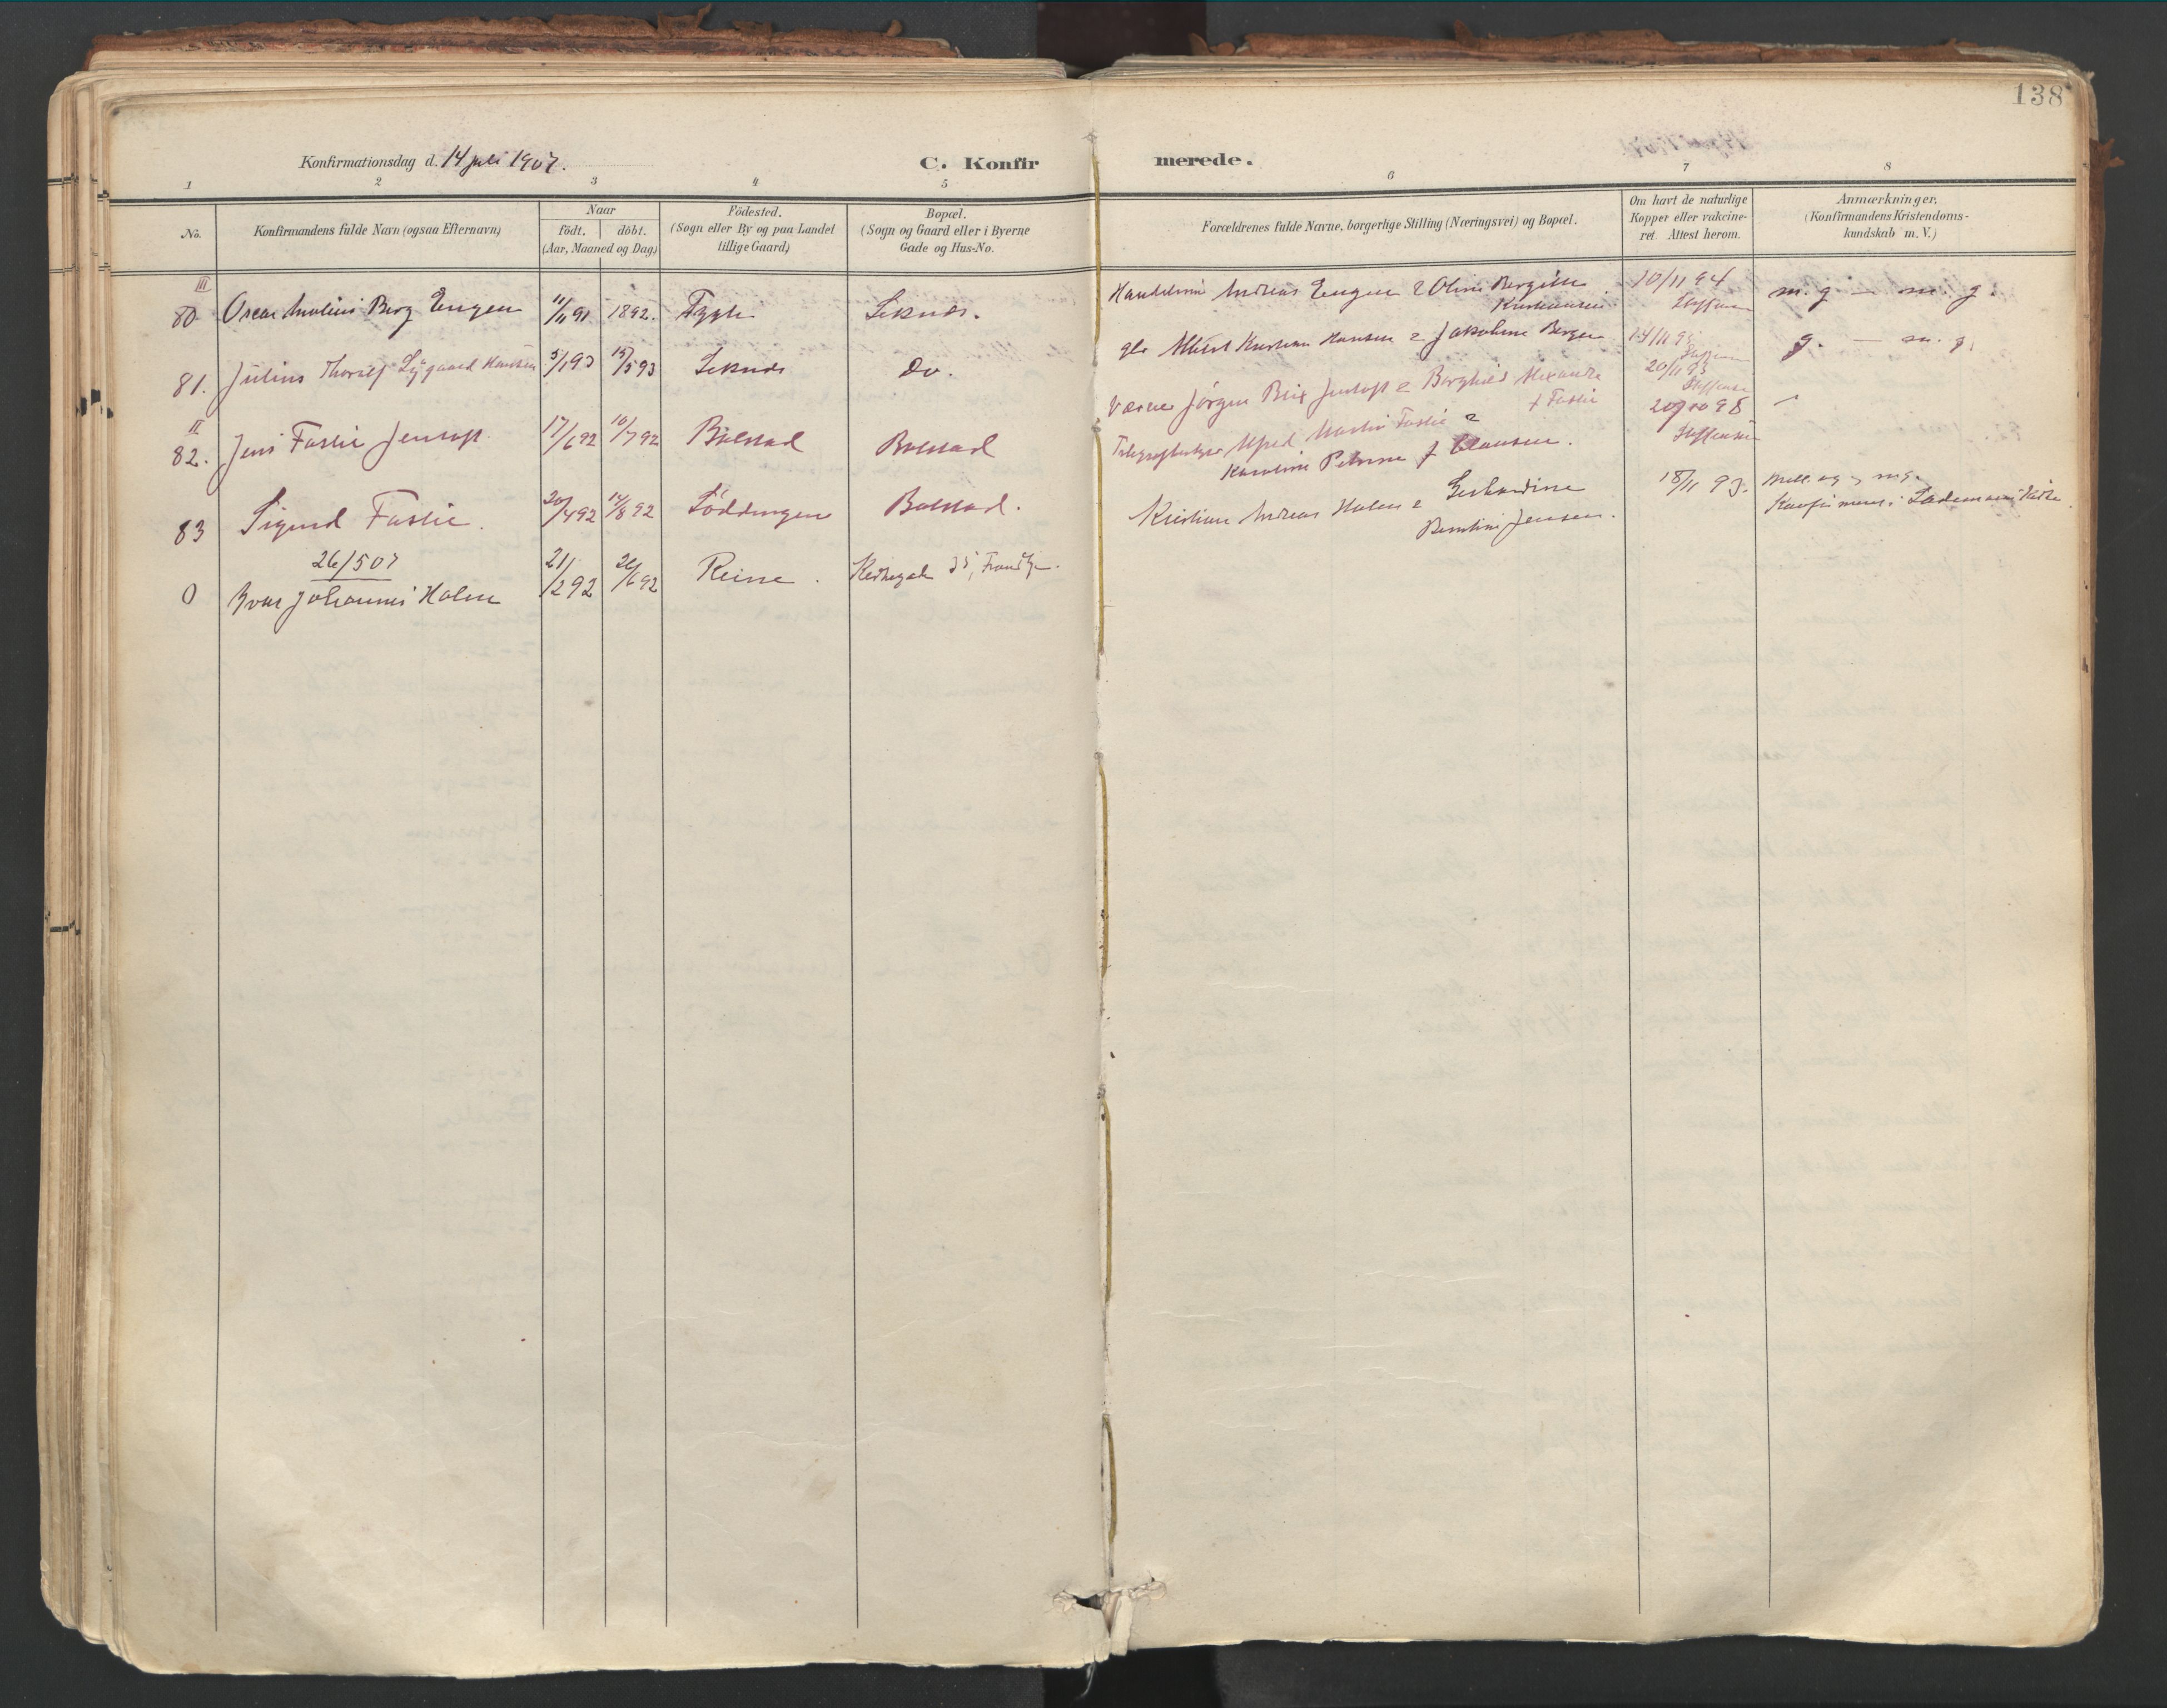 138
Konfirmationsdag d. 14 juli 1907.
C. Konfirmerede.
1 2 3 4 5 6 7 8
No.
Konfirmandens fulde Navn (ogsaa Efternavn)
Naar
födt. döbt.
(Aar, Maaned og Dag)
Födested.
(Sogn eller By og paa Landet
tillige Gaard)
Bopæl.
(Sogn og Gaard eller i Byerne
Gade og Hus-No.
Forældrenes fulde Navne, borgerlige Stilling (Næringsvei) og Bopæl.
Om havt de naturlige
Kopper eller vakcine-
ret. Attest herom.
Anmærkninger.
(Konfirmandens Kristendoms-
kundskab m. V.)
III
80. Oscar Berg Engen 11/11 91 1892. Leknes. Andreas Engen & Oline Bergitte 10/11 94 m. g — m. g.
Steffensen
81. Julius Thoralf Lygaard Hansen 5/1 93 15/5 93 Leknes Do. Albert Kristian Hansen & Jakobine Berger 14/11 95 g. — m. g.
Steffensen
II
82. Jens Faslie Jentoft 17/6 92 10/7 92 Bolstad Bolstad Værrer Jörgen Brix Jentoft & Borghild Alexandra 20/11 93
f Faslie Steffensen
83 Sigurd Faslie. 20/4 92 14/8 92 Löddingen Bolstad. Alfred Martin Faslie & 20/10 98
Karoline Petrine f Clausen. Steffensen
26/5 07
0 Ivar Johannes Holm 21/2 92 26/6 92 Reine. 35, Kristian Andreas Holm & Gerhardine 18/11 93.
Jensen.